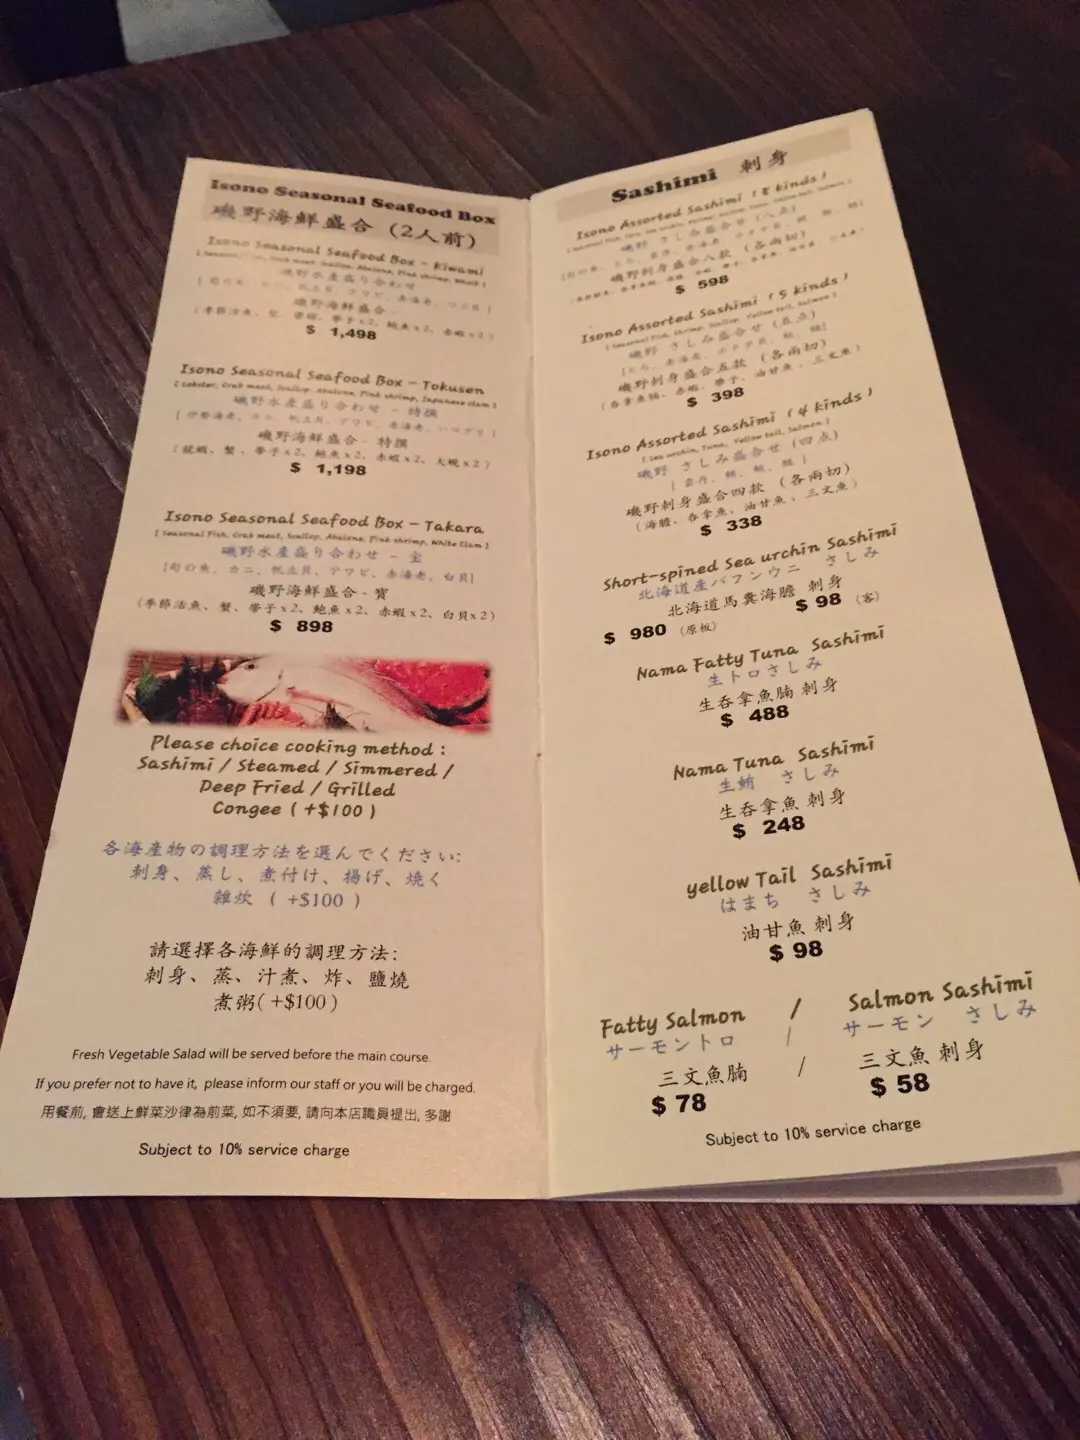 Isono Seasonal Seafood Box
磯野海鮮盛合 (2人前)
Isono Seasonal Seafood Box - Kiwami
磯野水産盛り合わせ
磯野海鮮盛合 -
$ 1,498
Isono Seasonal Seafood Box - Tokusen
( Lobster, Crab meat, Scallop, Abalone, Pink shrimp, Japanese clam )
磯野水産盛り合わせ - 特撰
[ 伊勢海老、カニ、帆立貝、アワビ、赤海老、ハマグリ ]
磯野海鮮盛合 - 特撰
(龍蝦、蟹、帶子x2、鮑魚x2、赤蝦x2、大蜆x2)
$ 1,198
Isono Seasonal Seafood Box - Takara
( Seasonal Fish, Crab meat, Scallop, Abalone, Pink shrimp, White Clam )
磯野水産盛り合わせ - 宝
[旬の魚、カニ、帆立貝、アワビ、赤海老、白貝]
磯野海鮮盛合 - 寶
(季節活魚、蟹、帶子x2、鮑魚x2、赤蝦x2、白貝x2)
$ 898
Please choice cooking method :
Sashimi / Steamed / Simmered /
Deep Fried / Grilled
Congee ( +$100 )
各海産物の調理方法を選んでください:
刺身、蒸し、煮付け、揚げ、焼く
雑炊 ( +$100 )
請選擇各海鮮的調理方法:
刺身、蒸、汁煮、炸、鹽燒
煮粥( +$100 )
Fresh Vegetable Salad will be served before the main course.
If you prefer not to have it, please inform our staff or you will be charged.
用餐前, 會送上鮮菜沙律為前菜, 如不須要, 請向本店職員提出, 多謝
Subject to 10% service charge
Sashimi 刺身
Isono Assorted Sashimi ( 8 kinds )
磯野 さしみ盛合せ (八点)
磯野刺身盛合八款 (各兩切)
$ 598
Isono Assorted Sashimi ( 5 kinds )
( Seasonal Fish, Shrimp, Scallop, Yellow tail, Salmon )
磯野 さしみ盛合せ (五点)
磯野刺身盛合五款 (各兩切)
(吞拿魚腩、赤蝦、帶子、油甘魚、三文魚)
$ 398
Isono Assorted Sashimi ( 4 kinds )
( Sea urchin, Tuna, Yellow tail, Salmon )
磯野 さしみ盛合せ (四点)
磯野刺身盛合四款 (各兩切)
(海膽、吞拿魚、油甘魚、三文魚)
$ 338
Short-spined Sea urchin Sashimi
北海道産バフンウニ さしみ
北海道馬糞海膽 刺身
$ 980 (原板) $ 98 (客)
Nama Fatty Tuna Sashimi
生トロさしみ
生吞拿魚腩 刺身
$ 488
Nama Tuna Sashimi
生鮪 さしみ
生吞拿魚 刺身
$ 248
yellow Tail Sashimi
はまち さしみ
油甘魚 刺身
$ 98
Fatty Salmon / Salmon Sashimi
サーモントロ / サーモン さしみ
三文魚腩 / 三文魚 刺身
$ 78 $ 58
Subject to 10% service charge